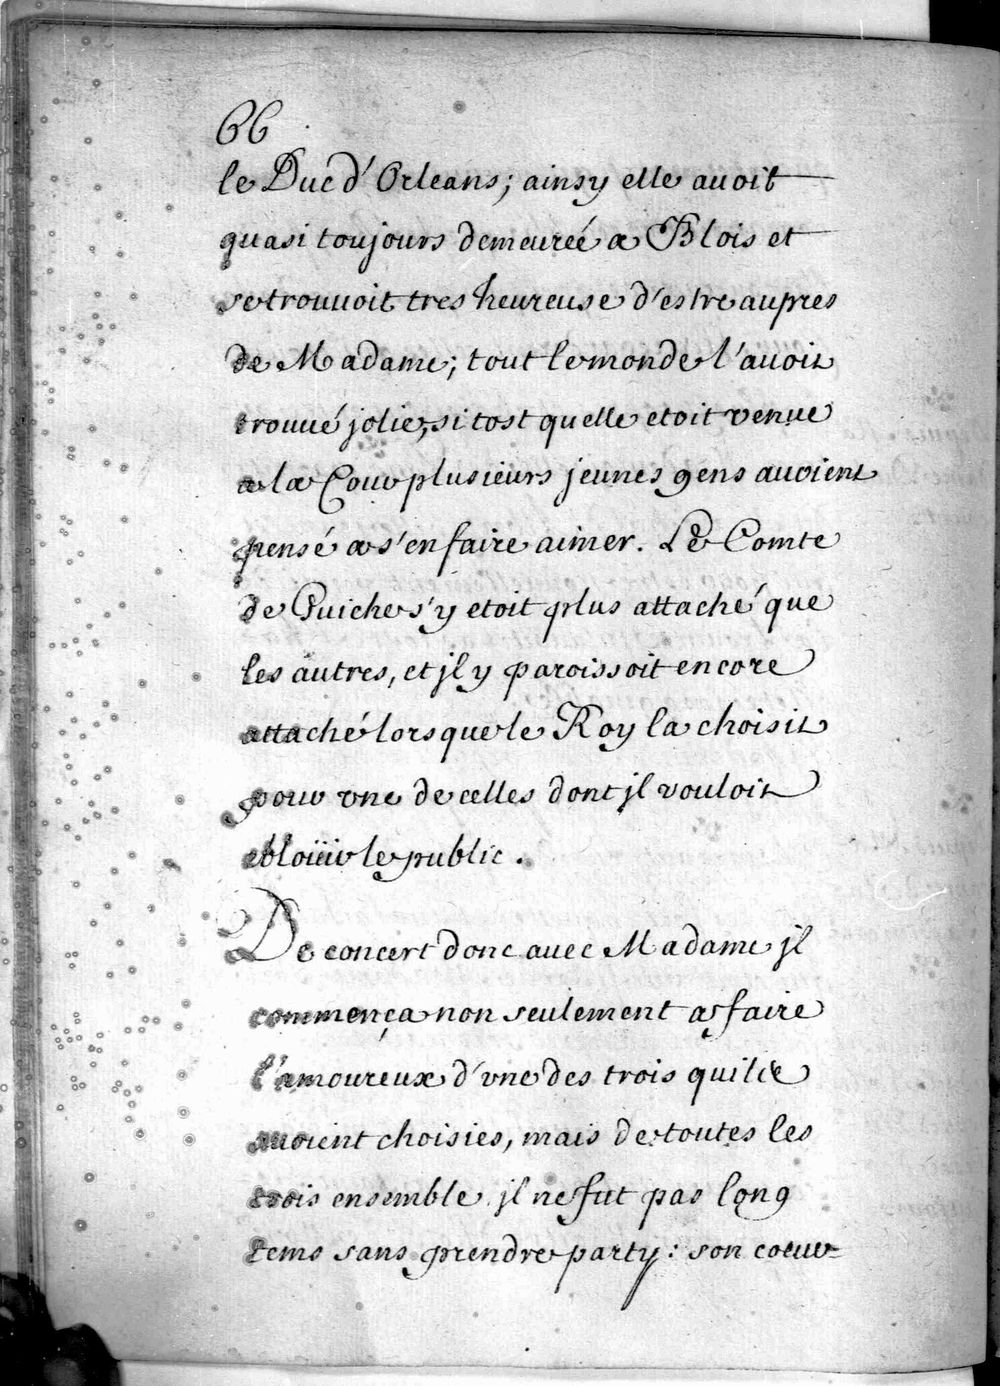 66
le Duc d'Orleans; ainsy elle auoit
quasi toujours demeureé a Blois et
se trouuoit tres heureuse d'estre aupres
de Madame; tout le monde l'auoit
trouué jolie, si tost quelle etoit venue
a la Cour plusieurs jeunes gens auoient
pensé a s'en faire aimer. Le Comte
de Guiche s'y etoit plus attaché que
les autres, et jl y paroissoit encore
attaché lors que le Roy la choisit
pour vne de celles dont jl vouloit
ebloüir le public.
De concert donc auec Madame jl
commença non seulement a faire
l'amoureux d'vne des trois quilie
auoient choisies, mais de toutes les
trois ensemble jl ne fut pas long
tems sans prendre party: son coeur